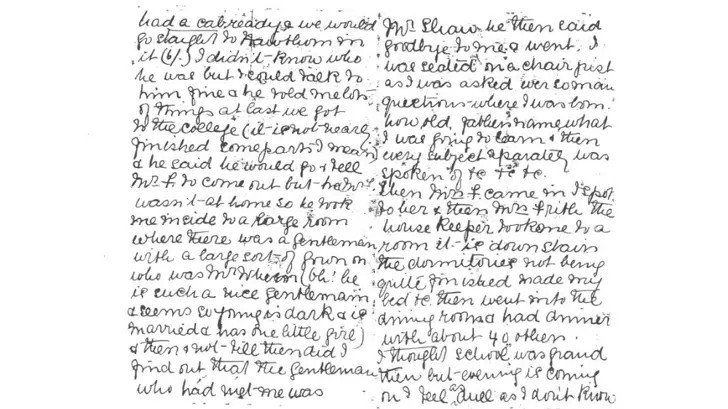 had a cab ready & we would
go straight to Hawthorn in
it (6/-) I didn't know who
he was but I could talk to
him fine & he told me lots
of things at last we got
to the college (it is not nearly
finished some parts I mean)
& he said he would go & tell
Mr F. to come out but he
wasn't at home so he took
me inside to a large room
where there was a gentleman
with a large sort of gown on
who was Mr (Oh! he
is such a nice gentleman
& seems so young is dark & is
married & has one little girl)
& then & not till then did I
find out that the gentleman
who had met me was
Mr Shaw he then said
goodbye to me & went. I
was seated on a chair just
as I was asked ever so many
questions where I was born
how old, father's name what
I was going to learn & then
every subject separately was
spoken of &c &c &c
Then Mrs F. came in I spoke
to her & then Mrs Frith the
house keeper took me to a
room it is down stairs
the dormitories not being
quite finished made my
bed &c then went into the
dining room & had dinner
with about 40 others.
I thought school was grand
then but evening is coming
on I feel a dull as I don't know